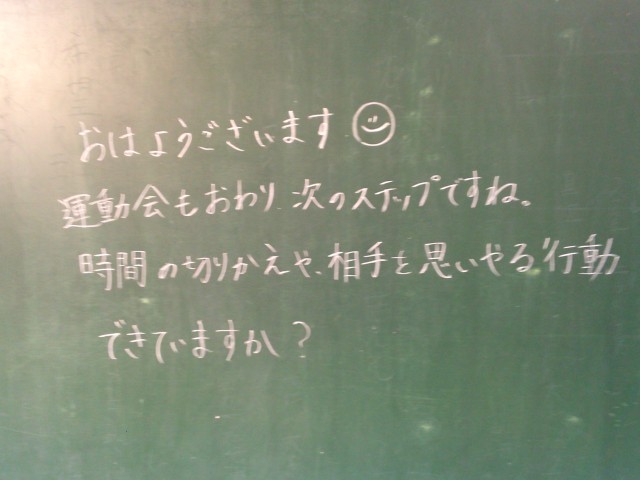 おはようございます
運動会もおわり、次のステップですね。
時間の切りかえや、相手を思いやる行動
できていますか?